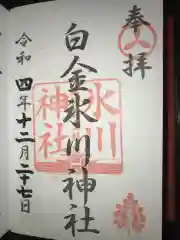 奉拝
白金氷川神社
氷川神社
令和四年十二月二十七日